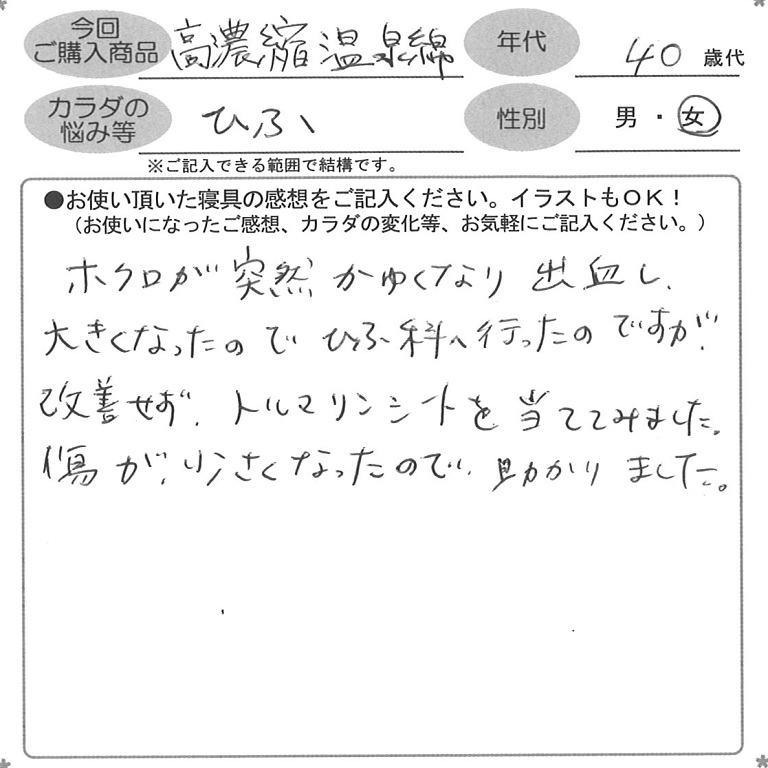 今回
ご購入商品 高濃縮温泉綿 年代 40 歳代
カラダの
悩み等 ひふ 性別 男・女
※ご記入できる範囲で結構です。
●お使い頂いた寝具の感想をご記入ください。イラストもOK!
(お使いになったご感想、カラダの変化等、お気軽にご記入ください。)
ホクロが突然かゆくなり出血し、
大きくなったのでひふ科へ行ったのですが、
改善せず、トルマリンシートを当ててみました。
傷が、小さくなったので、助かりました。